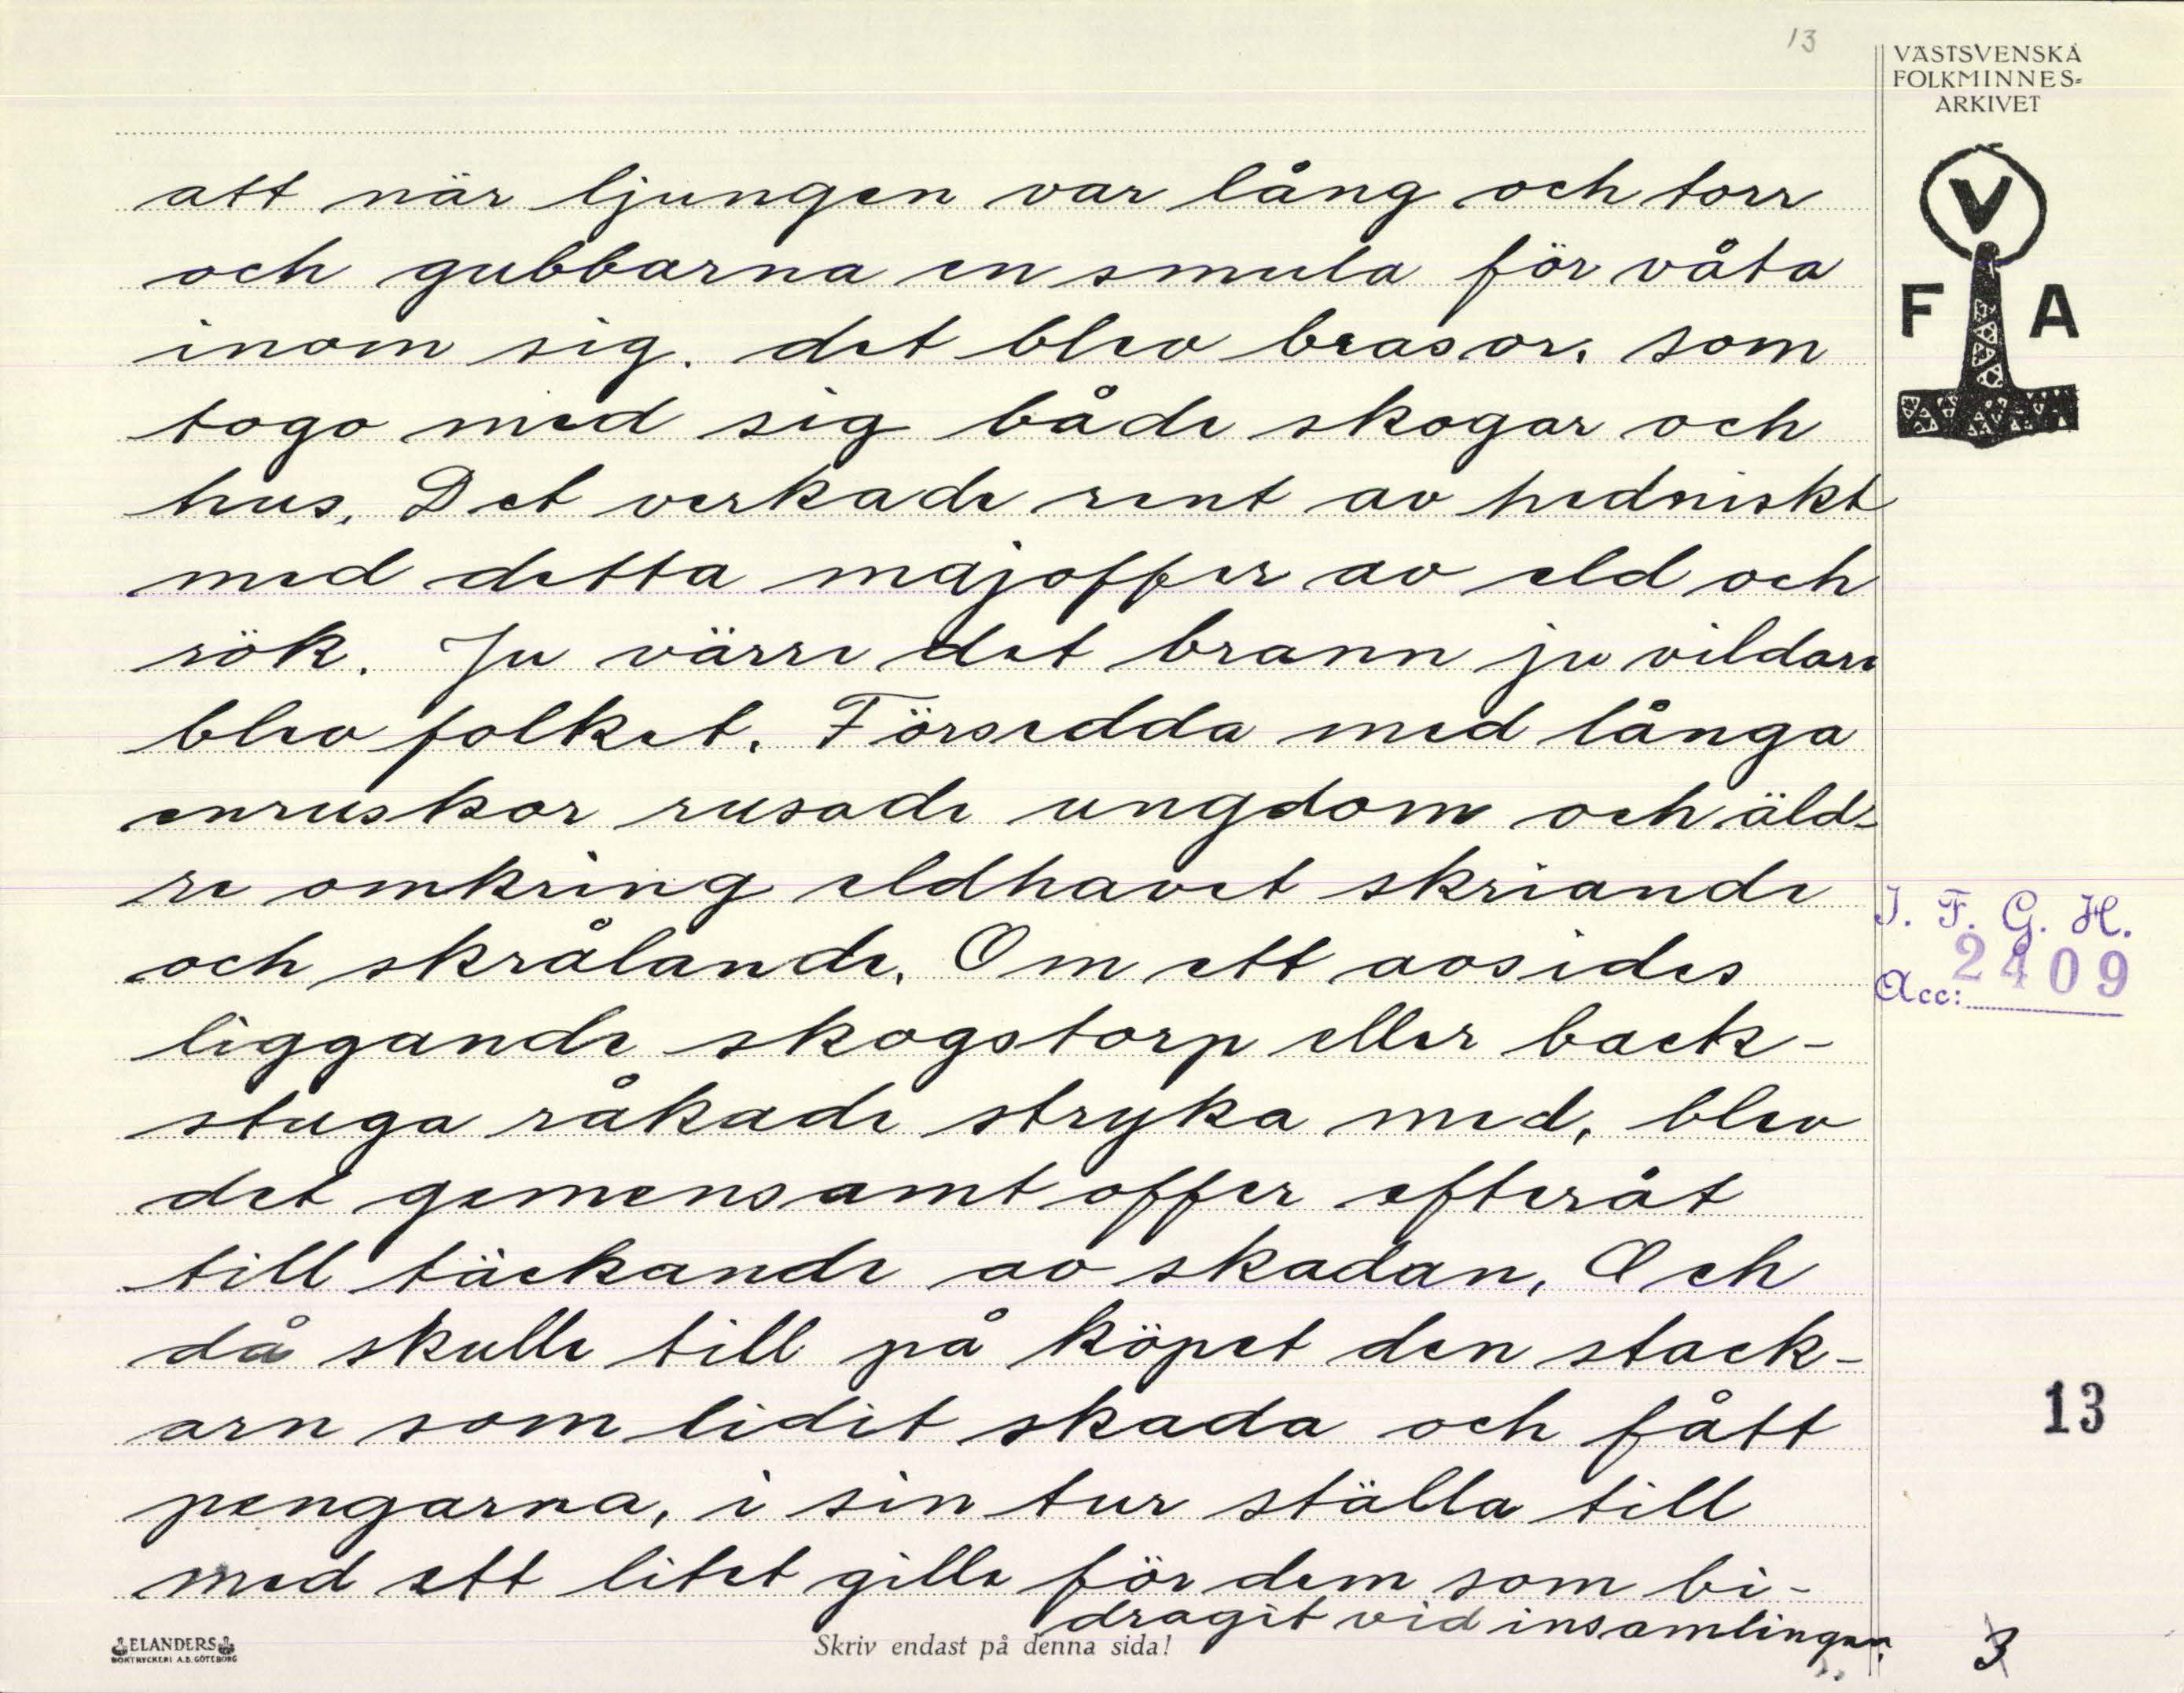 13
VÄSTSVENSKA
FOLKMINNES=
ARKIVET
V
F A
att när ljungen var lång och torr
och gubbarna en smula för våta
inom sig. det blev brasor, som
togo med sig både skogar och
hus. Det verkade rent av hedniskt
med detta majoffer av eld och
rök. Ju värre det brann ju vildare
blev folket. Försedda med långa
enruskor rusade ungdom och äld-
re omkring eldhavet skriande
och skrålande. Om ett avsides
liggande skogstorp eller back-
stuga råkade stryka med, blev
det gemensamt offer efteråt
till täckande av skadan. Och
då skulle till på köpet den stack-
arn som lidit skada och fått
pengarna, i sin tur ställa till
med ett litet gille för dem som bi-
dragit vid insamlingen.
I. F. G. H.
Acc: 2409
13
3
ELANDERS
BOKTRYCKERI A.B. GÖTEBORG
Skriv endast på denna sida!